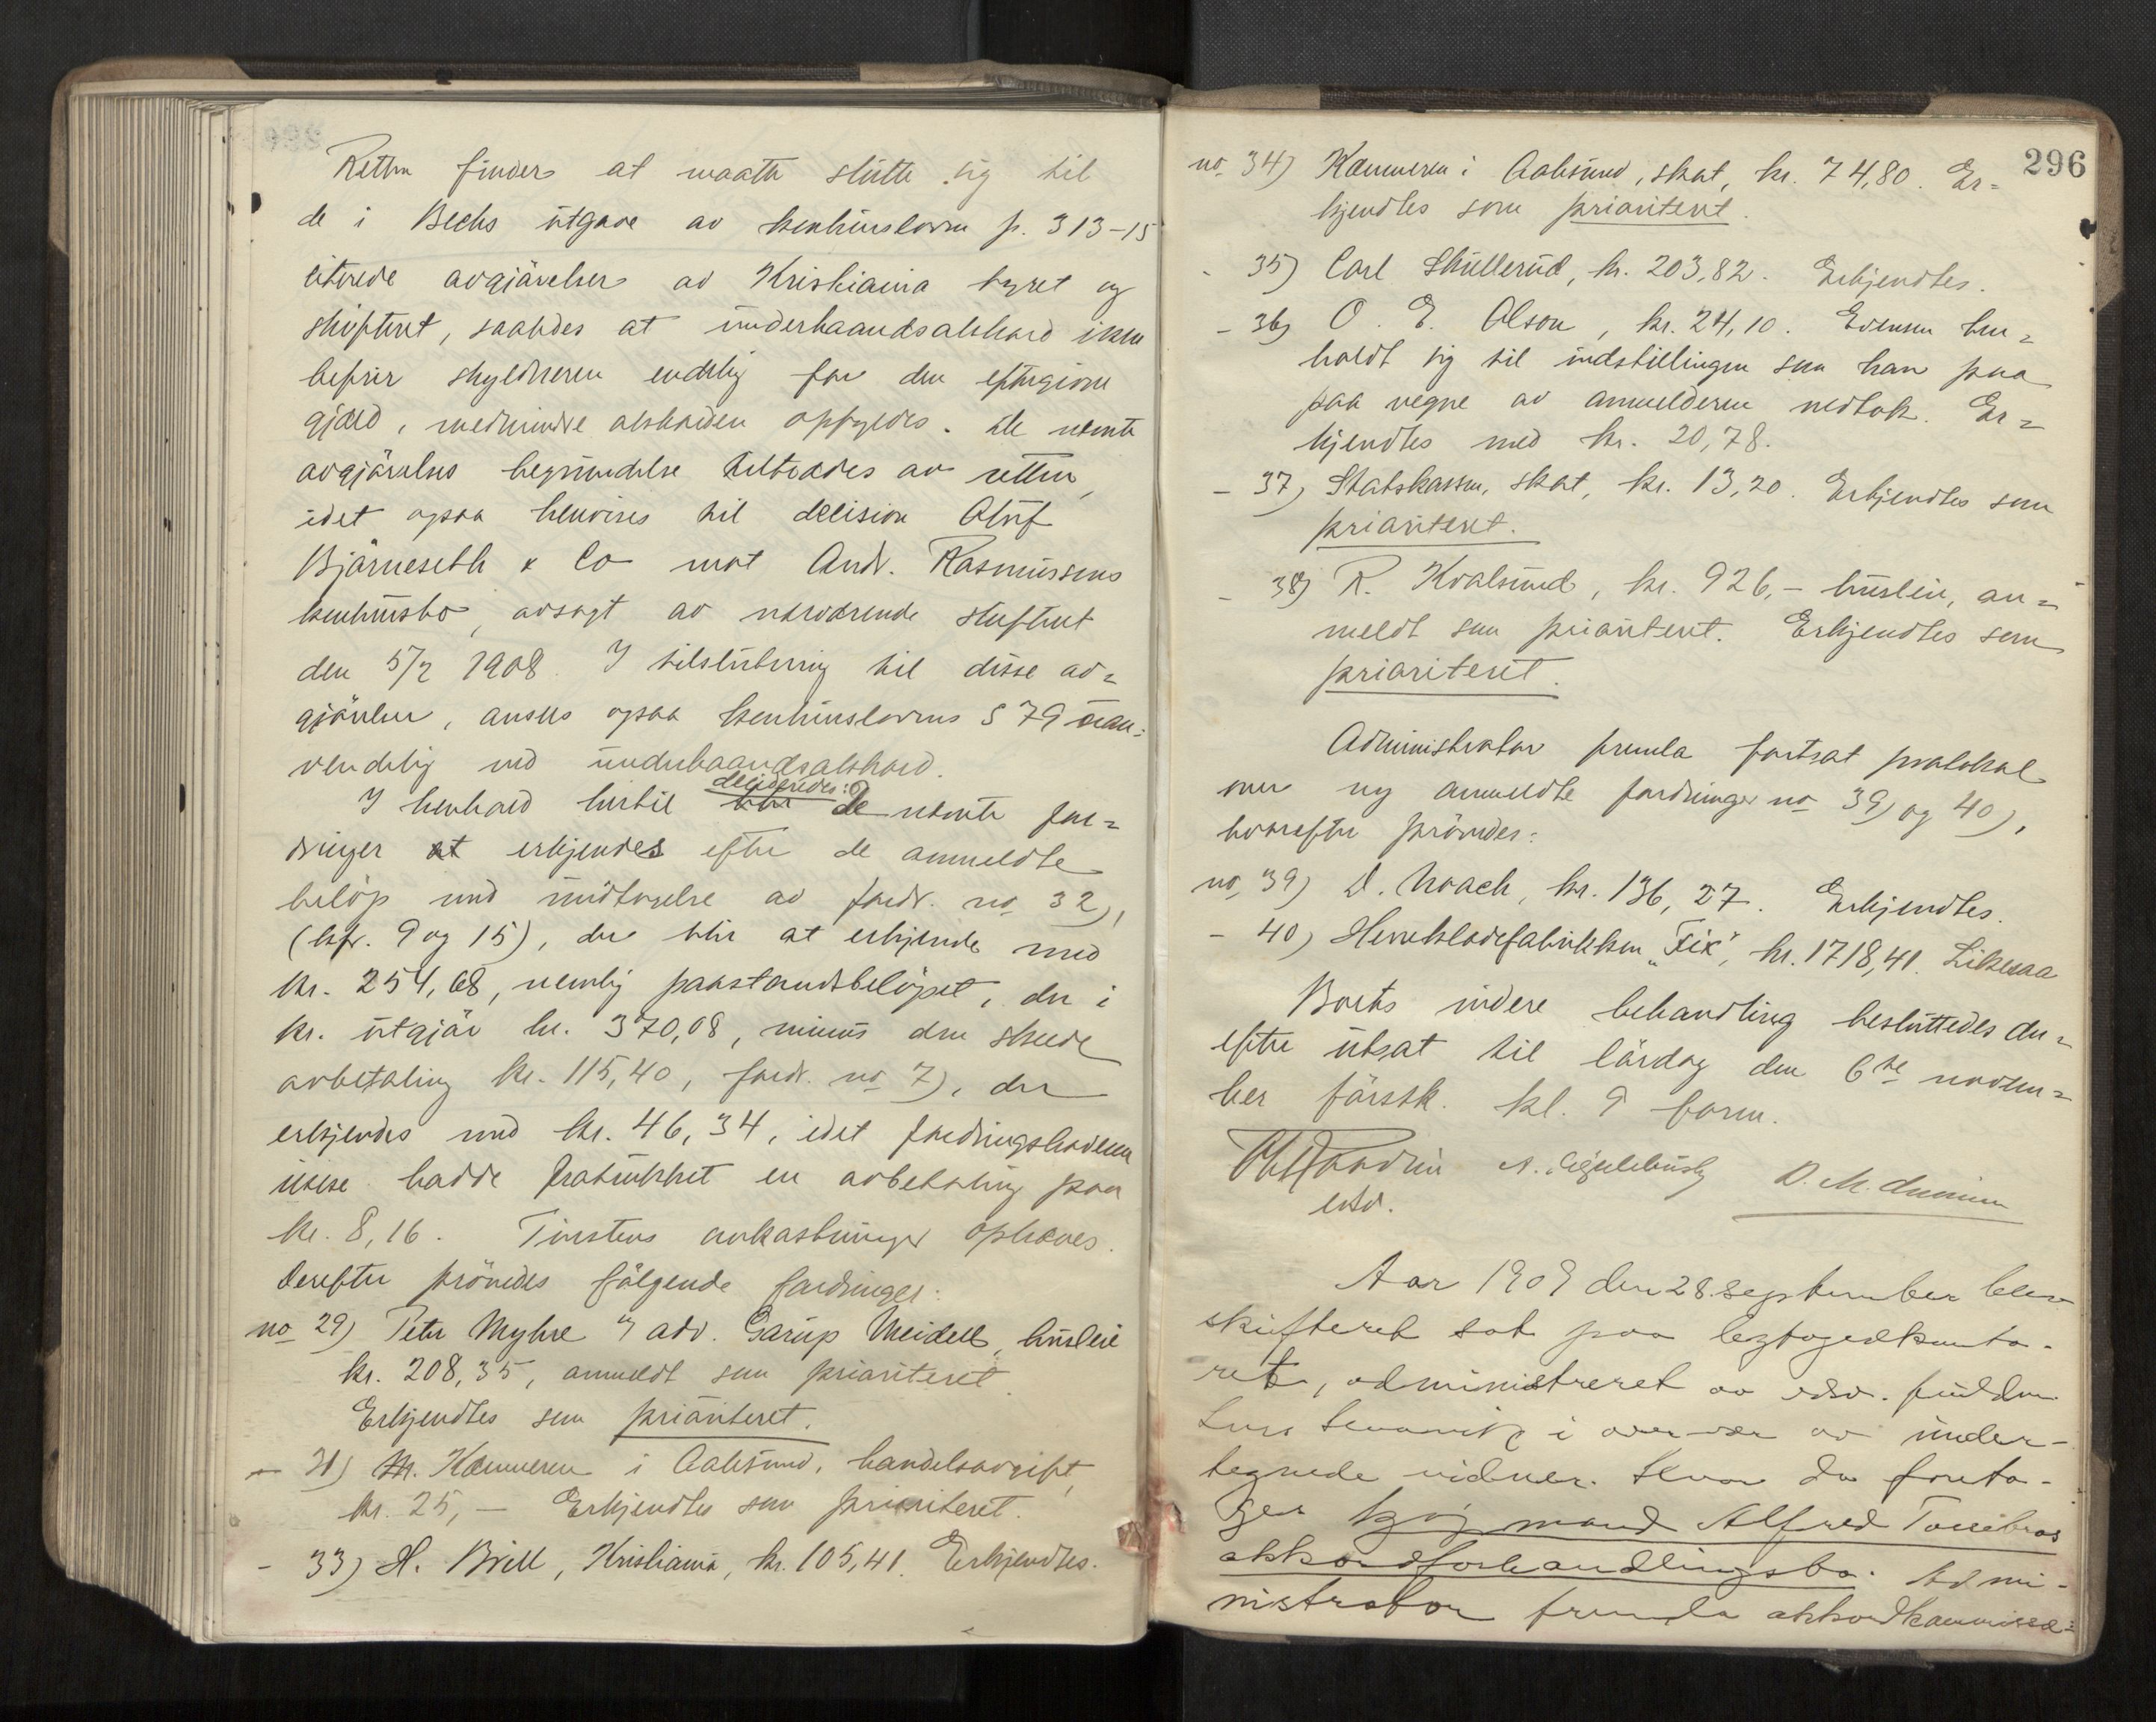 Retten finder at maatte støtte sig til
de i Bechs utgave av konkursloven p. 313-15
citerede avgjørelser av Kristiania byret og
skifteret, saaledes at underhaandsakkord ikke
befrir skyldneren endelig for den eftergivne
gjæld, medmindre akkorden opfyldes. De nævnte
avgjørelses begrundelse tiltrædes av retten,
idet ogsaa henvises til decision Oluf
Bjørneseth & Co mot Andr. Rasmussens
konkursbo, avsagt av nærværende skifteret
den 5/2 1908. I tilslutning til disse av=
gjørelser, ansees ogsaa konkurslovens § 79 uan=
vendelig ved underhaandsakkord.
decideredes:
I henhold hertil blir De nævnte for=
dringer at erkjendes efter de anmeldte
beløp med undtagelse av fordr. no 32),
(kfr. 9 og 15), der blir at erkjende med
kr. 254,68, nemlig paastandsbeløpet, der i
kr. utgjør kr. 370,08, minus den skeede
avbetaling kr. 115,40, fordr. no 7), der
erkjendes med kr. 46,34, idet fordringshaveren
ikke hadde fratrukket en avbetaling paa
kr. 8,16. Tvistens omkostninger ophæves.
Derefter prøvedes følgende fordringer:
no 29) Peter Myhre v/ adv. Garup Meidell, husleie
kr. 208,35, anmeldt som prioritert.
Erkjendtes som prioriteret.
- 31) Kæmneren i Aalesund, handelsavgift,
kr. 25,- Erkjendtes som prioriteret.
- 33) H. Brill, Kristiania, kr. 105,41. Erkjendtes.
296
no 34) Kæmneren i Aalesund, skat, kr. 74,80. Er=
kjendtes som prioritert.
- 35) Carl Skullerud, kr. 203,82. Erkjendtes.
- 36) O. E. Olson, kr. 24,10. Evensen hen=
holdt sig til indstillingen som han paa
paa vegne av anmelderen vedtok. Er=
kjendtes med kr. 20,78.
- 37) Statskassen, skat, kr. 13,20. Erkjendtes som
prioriteret.
- 38) R. Kvalsund, kr. 926,- husleie, an=
meldt som prioriteret. Erkjendtes som
prioriteret.
Administrator fremla fortsat protokol
over ny anmeldte fordringer no 39) og 40),
hvorefter prøvedes:
no 39) D. Noach, kr. 136,27. Erkjendtes.
- 40) Herreklædefabrikken "Fix", kr. 1718,41. Likesaa
Boets videre behandling besluttedes der=
efter utsat til lørdag den 6te novem=
ber førstk. kl. 9 form.
edsv.
Aar 1909 den 28. september blev
skifteret sat paa byfogedkonto-
ret, administreret av edsv. fuldm.
i overvær av under-
tegnede vidner. Hvor da foreto-
ges kjøpmand Alfred Tonebros
akkordforhandlingsbo. Admi-
nistrator fremla akkordkommissæ=